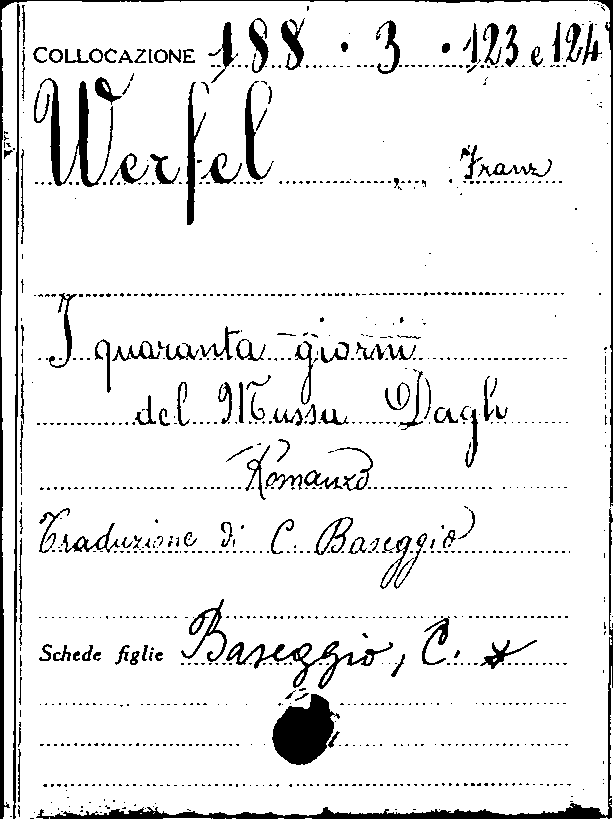 COLLOCAZIONE 188 · 3 · 123 e 124
Werfel , Franz
I quaranta giorni
del Mussa Dagh
Romanzo
Traduzione di C. Baseggio
Schede figlie Baseggio, C. *